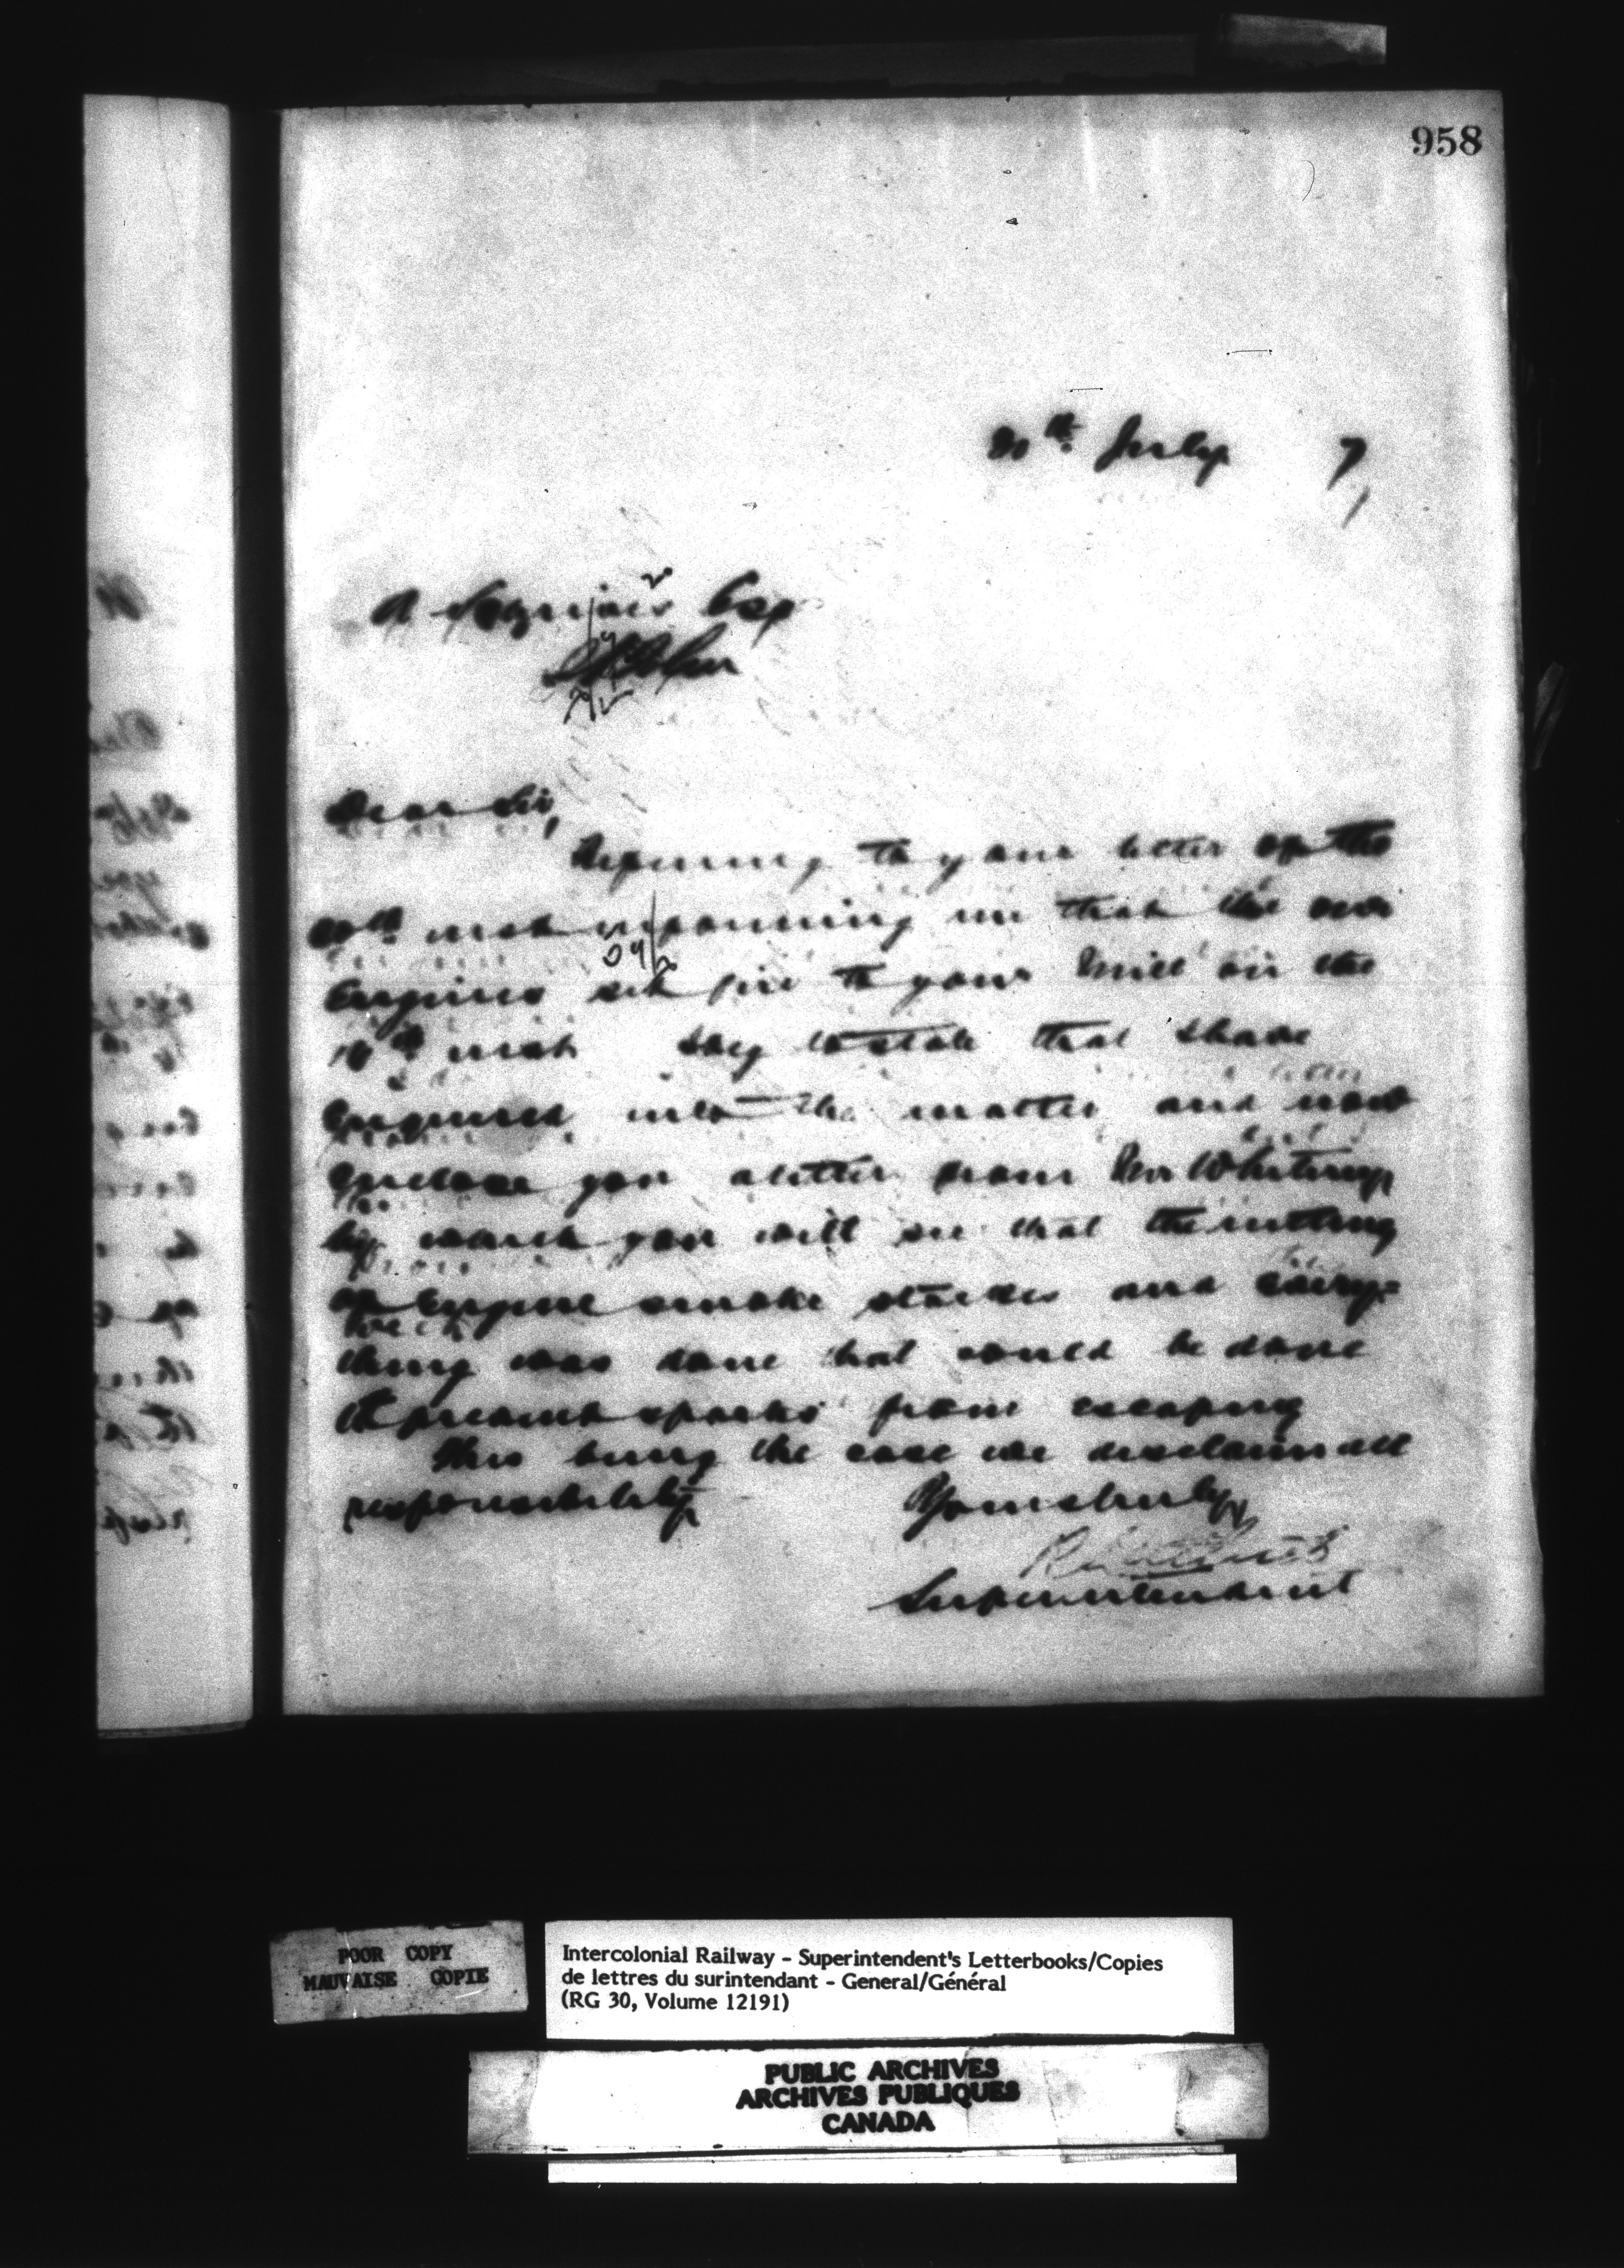 958
30th July 7
A Esq
St John
Dear Sir,
Referring to your letter of the
20th inst informing me that the our
Engines set fire to your Mill on the
10th inst beg to state that I have
Enquired into the matter and now
Enclose you a letter from Mr Whitney
by which you will see that the netting
of Engine smoke stacks and every=
thing was done that could be done
to prevent sparks from escaping
This being the case we disclaim all
responsibility Yours truly
Superintendent
POOR COPY
MAUVAISE COPIE
Intercolonial Railway - Superintendent's Letterbooks/Copies
de lettres du surintendant - General/Général
(RG 30, Volume 12191)
PUBLIC ARCHIVES
ARCHIVES PUBLIQUES
CANADA